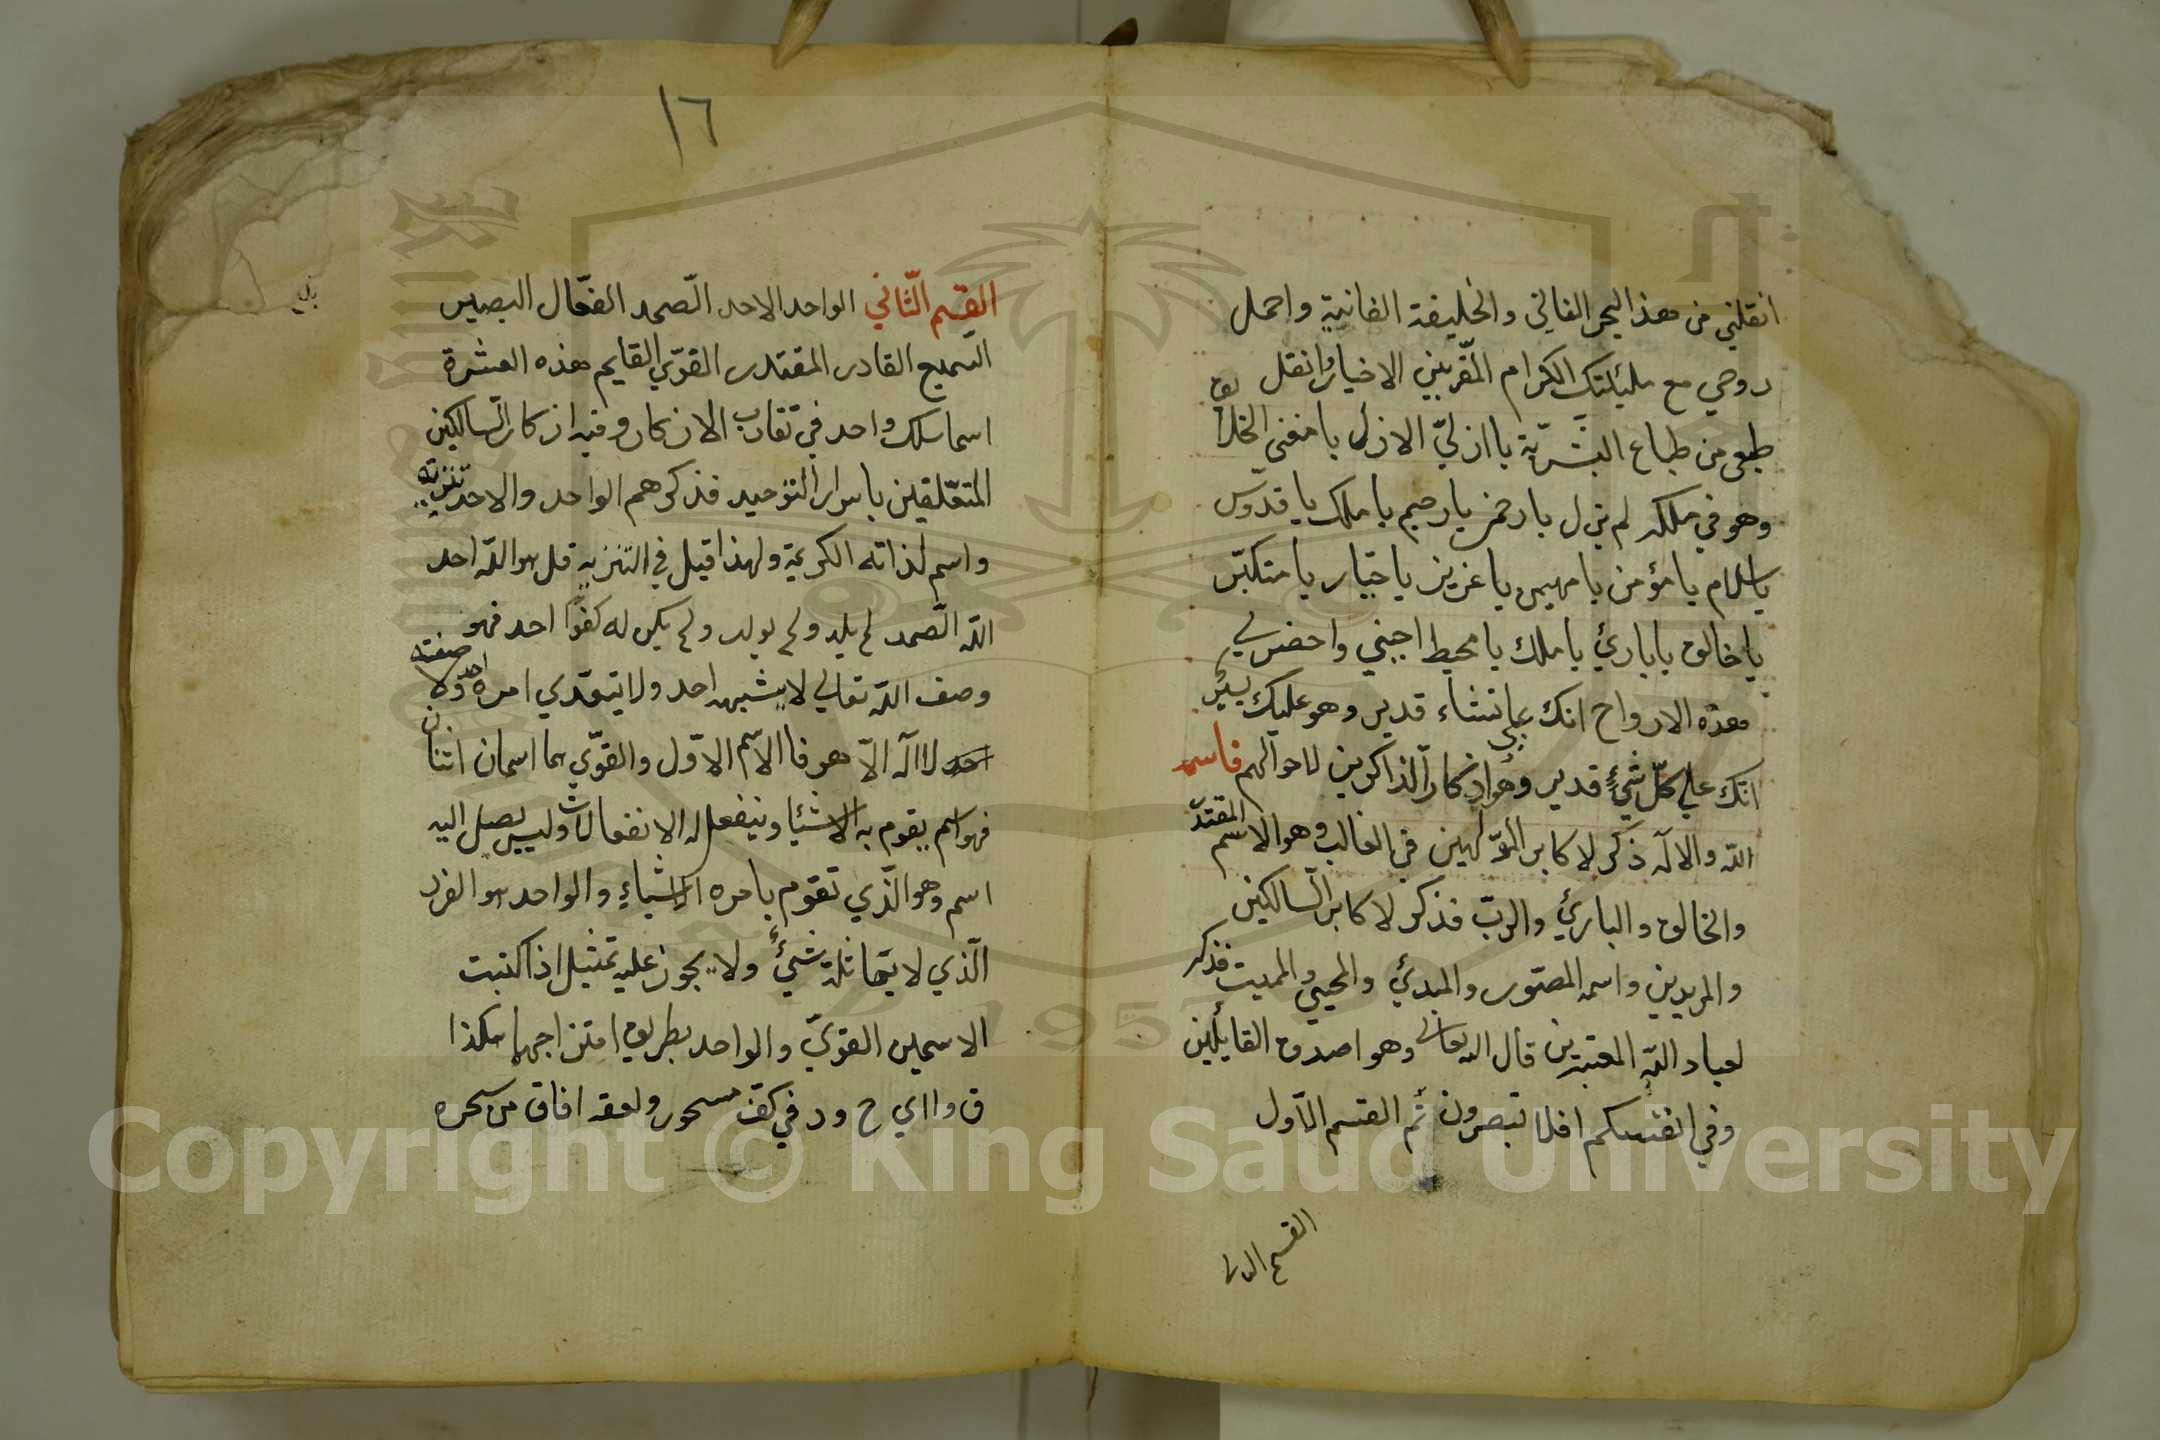 انقلني من هذا البحر الفاني والخليقة الفانية واحمل
روحي مع مليكتك الكرام المقربين الاخيار وانقل
طبعي من طباع البشرية يا ازليّ الازل يا مفني الخلايق
وهو في ملكه لم يزل يا رحمن يا رحيم يا ملك يا قدّوس
يا سلام يا مؤمن يا مهيمن يا عزيز يا جبّار يا متكبّر
يا خالق يا بارئ يا ملك يا محيط اجبني واحضر لي
هذه الارواح انك بما تشاء قدير وهو عليك يسير
انك علي كلّ شيء قدير وهو اذكار الذاكرين لاحوالهم فاسمه
الله والاله ذكر لاكابر المولّهين في الغالب وهو الاسم المقتدر
والخالق والبارئ والربّ فذكر لاكابر السّالكين
والمريدين واسمه المصوّر والمبدئ والمحيي والمميت فذكر
لعباد الله المعتبرين قال الله تعالى وهو اصدق القائلين
وفي انفسكم افلا تبصرون تم القسم الاول
القسم
١٦
القسم الثّاني الواحد الاحد الصّمد الفعّال البصير
السّميع القادر المقتدر القوّي القايم هذه العشرة
اسما سلك واحد في تقارب الاذكار وفيه اذكار السّالكين
المتعّلقين باسرار التوحيد فذكرهم الواحد والاحد تنزيه
واسم لذاته الكريمة ولهذا قيل في التنزيه قل هو الله احد
الله الصّمد لم يلد ولم يولد ولم يكن له كفوًا احد فهو
وصف الله تعالي لا يشبهه احد ولا يتعّدي امره احد ولا صفته
احد لا اله الاّ هو فالاسم الاوّل والقوّي هما اسمان اثنان
فهو اسم يقوم به الاشيا وينفعل له الانفعالات وليس يصل اليه
اسم وهو الّذي تقوم بامره الاشياء والواحد هو الفرد
الّذي لا يماثله شيء ولا يجوز عليه تمثيل اذا كتبت
الاسمين القويّ والواحد بطريق امتزاجهما هكذا
ق و ا ا ي ح و د في كف مسحور ولعقه افاق من سحره